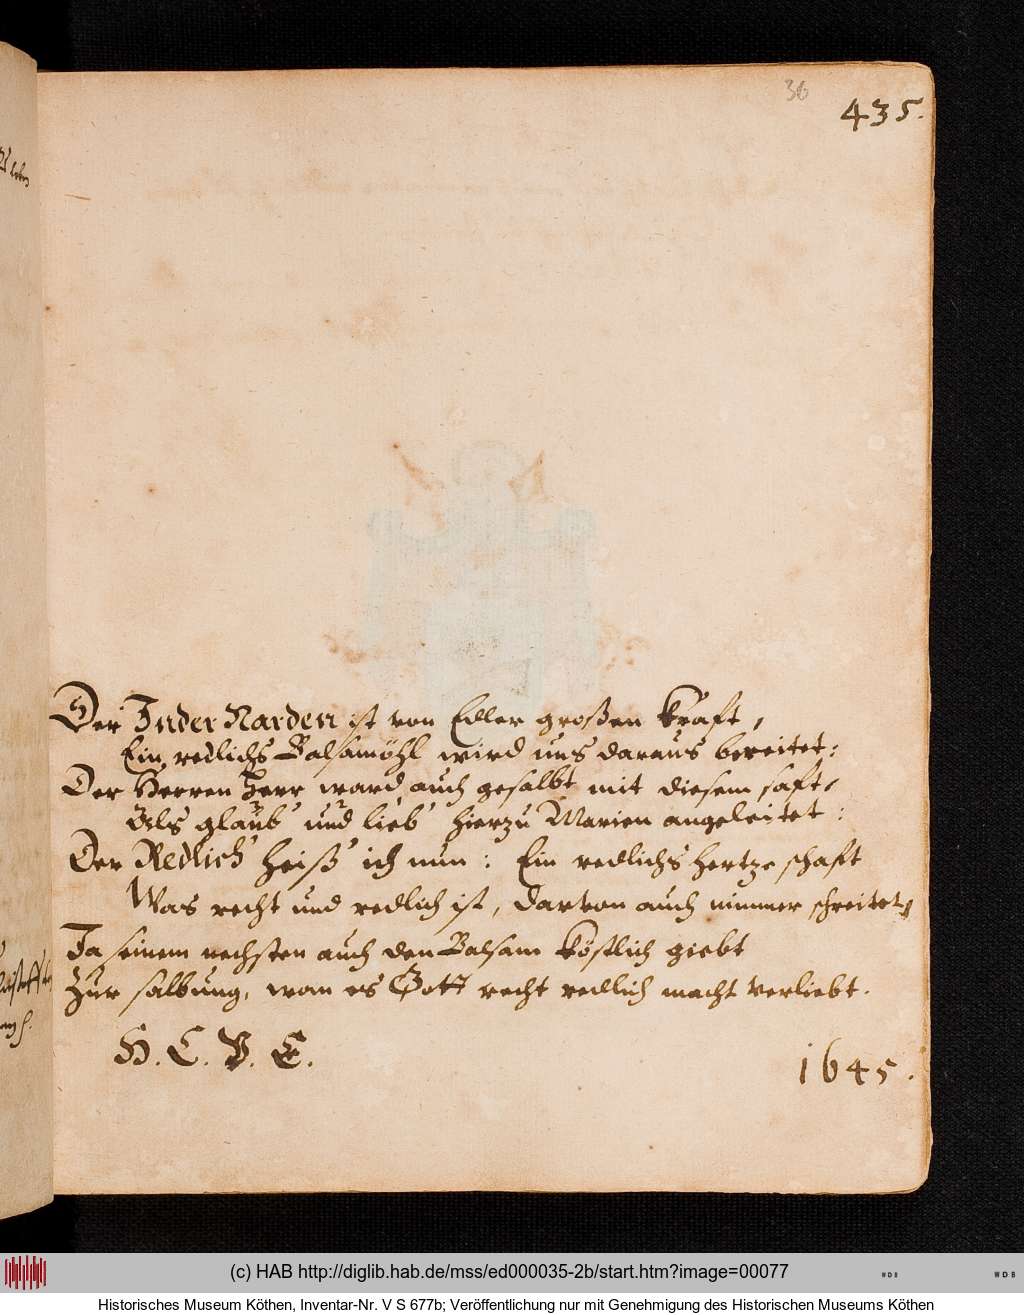 36
435.
Der Inder Narden ist von Edler großen kraft,
Ein redlichs Balsamöhl wird uns daraus bereitet:
Der Herren Herr ward auch gesalbt mit diesem saft,
Als glaub' und lieb' hierzu Marien angeleitet:
Der Redlich' heiß' ich nun: Ein redlichs hertze schaft
Was recht und redlich ist, darvon auch nimmer schreitet,
Ja seinem nechsten auch den Balsam köstlich giebt
Zur salbung, wan es Gott recht redlich macht verliebt.
H. C. V. E.
1645.
(c) HAB http://diglib.hab.de/mss/ed000035-2b/start.htm?image=00077
WDB
WDB
Historisches Museum Köthen, Inventar-Nr. V S 677b; Veröffentlichung nur mit Genehmigung des Historischen Museums Köthen